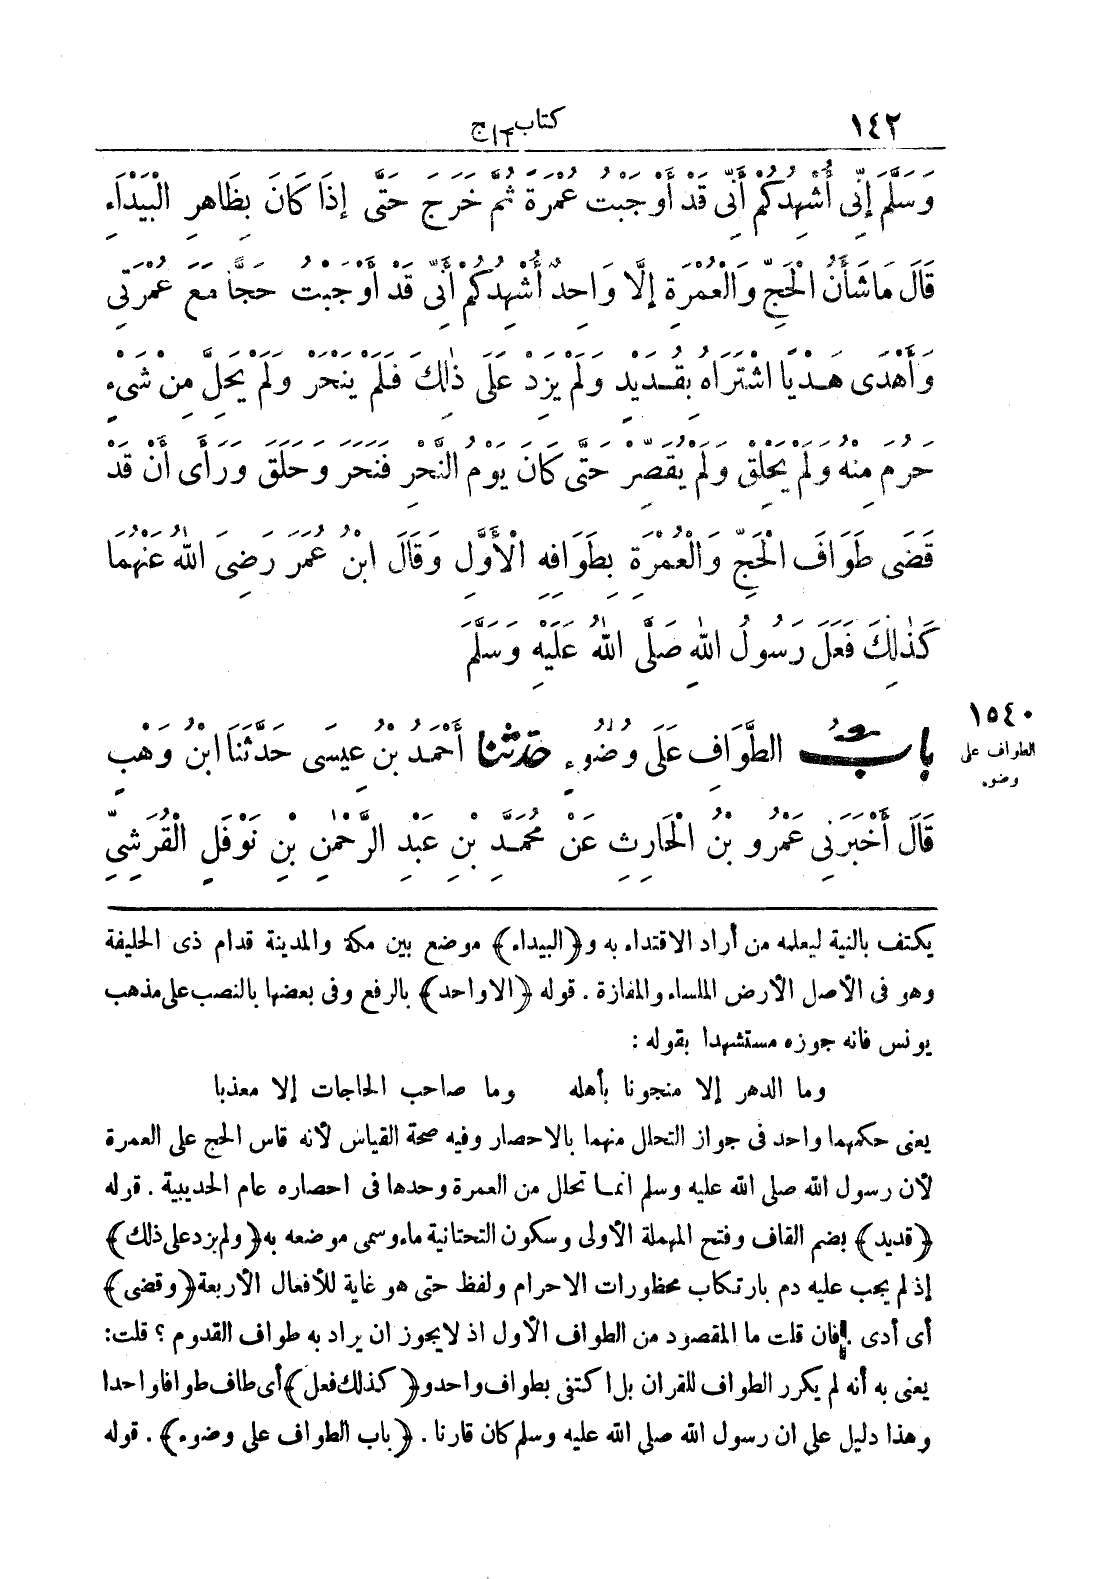 ١٤٢
كتاب الحج
وَسَلَّمَ إِنِّى أُشْهِدُكُمْ أَنِّى قَدْ أَوْجَبْتُ عُمْرَةً ثُمَّ خَرَجَ حَتَّى إِذَا كَانَ بِظَاهِرِ الْبَيْدَاءِ
قَالَ مَا شَأْنُ الْحَجِّ وَالْعُمْرَةِ إِلَّا وَاحِدٌ أُشْهِدُكُمْ أَنِّى قَدْ أَوْجَبْتُ حَجًّا مَعَ عُمْرَتِى
وَأَهْدَى هَدْيًا اشْتَرَاهُ بِقُدَيْدٍ وَلَمْ يَزِدْ عَلَى ذٰلِكَ فَلَمْ يَنْحَرْ وَلَمْ يَحِلَّ مِنْ شَىْءٍ
حَرُمَ مِنْهُ وَلَمْ يَحْلِقْ وَلَمْ يُقَصِّرْ حَتَّى كَانَ يَوْمُ النَّحْرِ فَنَحَرَ وَحَلَقَ وَرَأَى أَنْ قَدْ
قَضَى طَوَافَ الْحَجِّ وَالْعُمْرَةِ بِطَوَافِهِ الْأَوَّلِ وَقَالَ ابْنُ عُمَرَ رَضِىَ اللّٰهُ عَنْهُمَا
كَذٰلِكَ فَعَلَ رَسُولُ اللّٰهِ صَلَّى اللّٰهُ عَلَيْهِ وَسَلَّمَ
١٥٤٠
الطواف على
وضوء
بَابُ الطَّوَافِ عَلَى وُضُوءٍ حَدَّثَنَا أَحْمَدُ بْنُ عِيسَى حَدَّثَنَا ابْنُ وَهْبٍ
قَالَ أَخْبَرَنِى عَمْرُو بْنُ الْحَارِثِ عَنْ مُحَمَّدِ بْنِ عَبْدِ الرَّحْمٰنِ بْنِ نَوْفَلٍ الْقُرَشِىِّ
يكتف بالنية ليعلمه من أراد الاقتداء به و﴿البيداء﴾ موضع بين مكة والمدينة قدام ذى الحليفة
وهو فى الأصل الأرض الملساء والمفازة. قوله ﴿الا واحد﴾ بالرفع وفى بعضها بالنصب على مذهب
يونس فانه جوزه مستشهدا بقوله:
وما الدهر إلا منجونا بأهله وما صاحب الحاجات إلا معذبا
يعنى حكمهما واحد فى جواز التحلل منهما بالاحصار وفيه صحة القياس لأنه قاس الحج على العمرة
لأن رسول الله صلى الله عليه وسلم انمـا تحلل من العمرة وحدها فى احصاره عام الحديبية. قوله
﴿قديد﴾ بضم القاف وفتح المهملة الأولى وسكون التحتانية ماء وسمى موضعه به ﴿ولم يزد على ذلك﴾
إذ لم يجب عليه دم بارتكاب محظورات الاحرام ولفظ حتى هو غاية للأفعال الأربعة ﴿وقضى﴾
أى أدى. فان قلت ما المقصود من الطواف الأول اذ لا يجوز ان يراد به طواف القدوم ؟ قلت:
يعنى به أنه لم يكرر الطواف للقران بل اكتفى بطواف واحد و﴿كذلك فعل﴾ أى طاف طوافا واحدا
وهذا دليل على ان رسول الله صلى الله عليه وسلم كان قارنا. ﴿باب الطواف على وضوء﴾. قوله